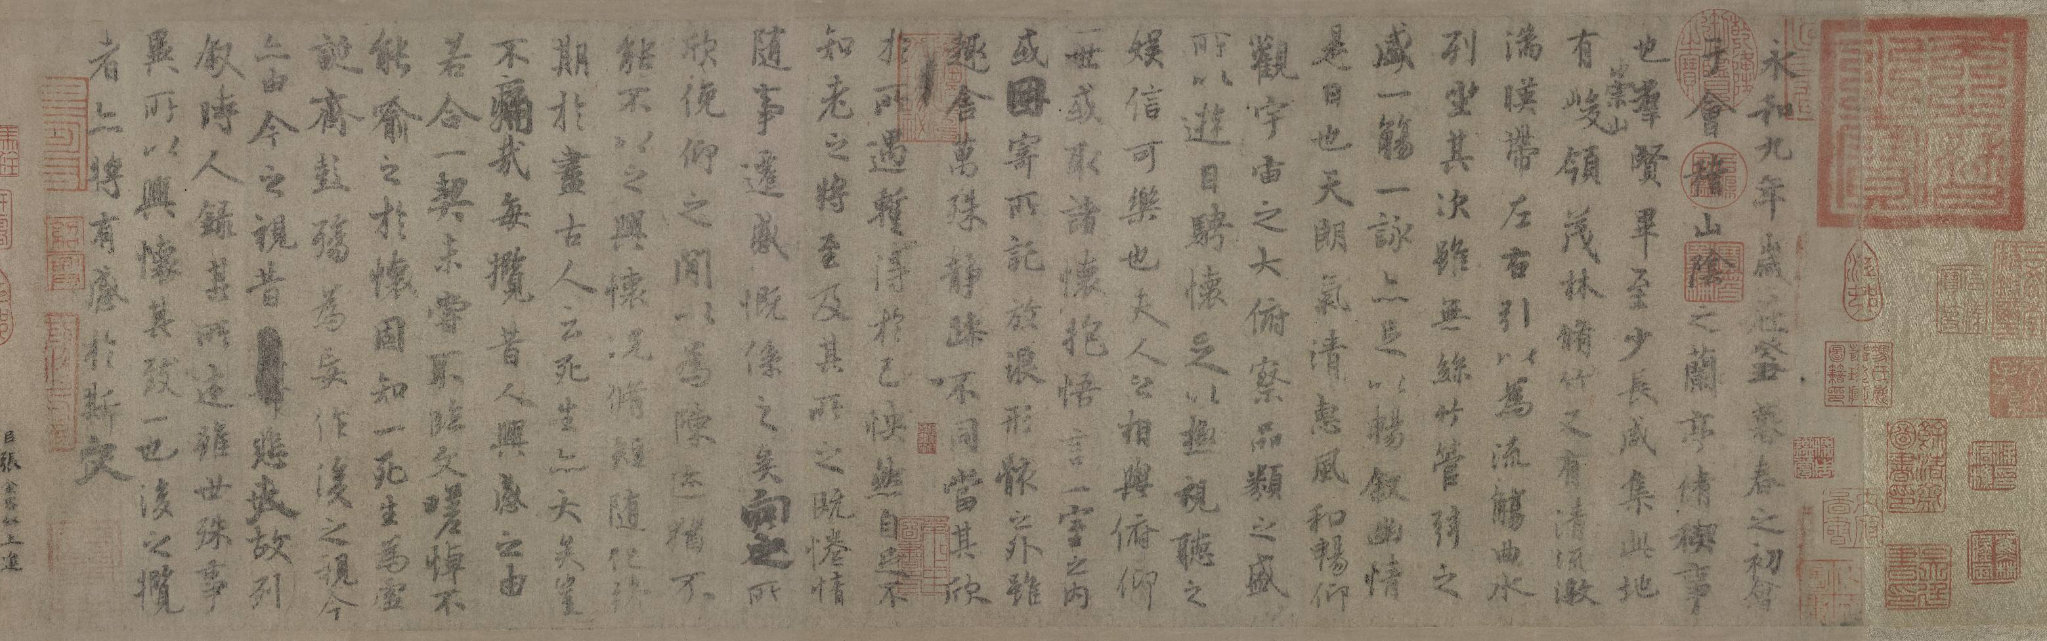 永和九年歲在癸丑暮春之初會
于會稽山陰之蘭亭脩禊事
也羣賢畢至少長咸集此地
有崇山峻領茂林脩竹又有清流激
湍暎帶左右引以為流觴曲水
列坐其次雖無絲竹管弦之
盛一觴一詠亦足以暢叙幽情
是日也天朗氣清惠風和暢仰
觀宇宙之大俯察品類之盛
所以遊目騁懷足以極視聽之
娛信可樂也夫人之相與俯仰
一世或取諸懷抱悟言一室之內
或因寄所託放浪形骸之外雖
趣舍萬殊靜躁不同當其欣
於所遇蹔得於己怏然自足不
知老之將至及其所之既惓情
随事遷感慨係之矣向之所
欣俛仰之閒以為陳迹猶不
能不以之興懷況脩短随化終
期於盡古人云死生亦大矣豈
不痛哉每攬昔人興感之由
若合一契未嘗不臨文嗟悼不
能喻之於懷固知一死生為虛
誕齊彭殤為妄作後之視今
亦由今之視昔悲夫故列
叙時人錄其所述雖世殊事
異所以興懷其致一也後之攬
者亦將有感於斯文
臣張金界奴上進